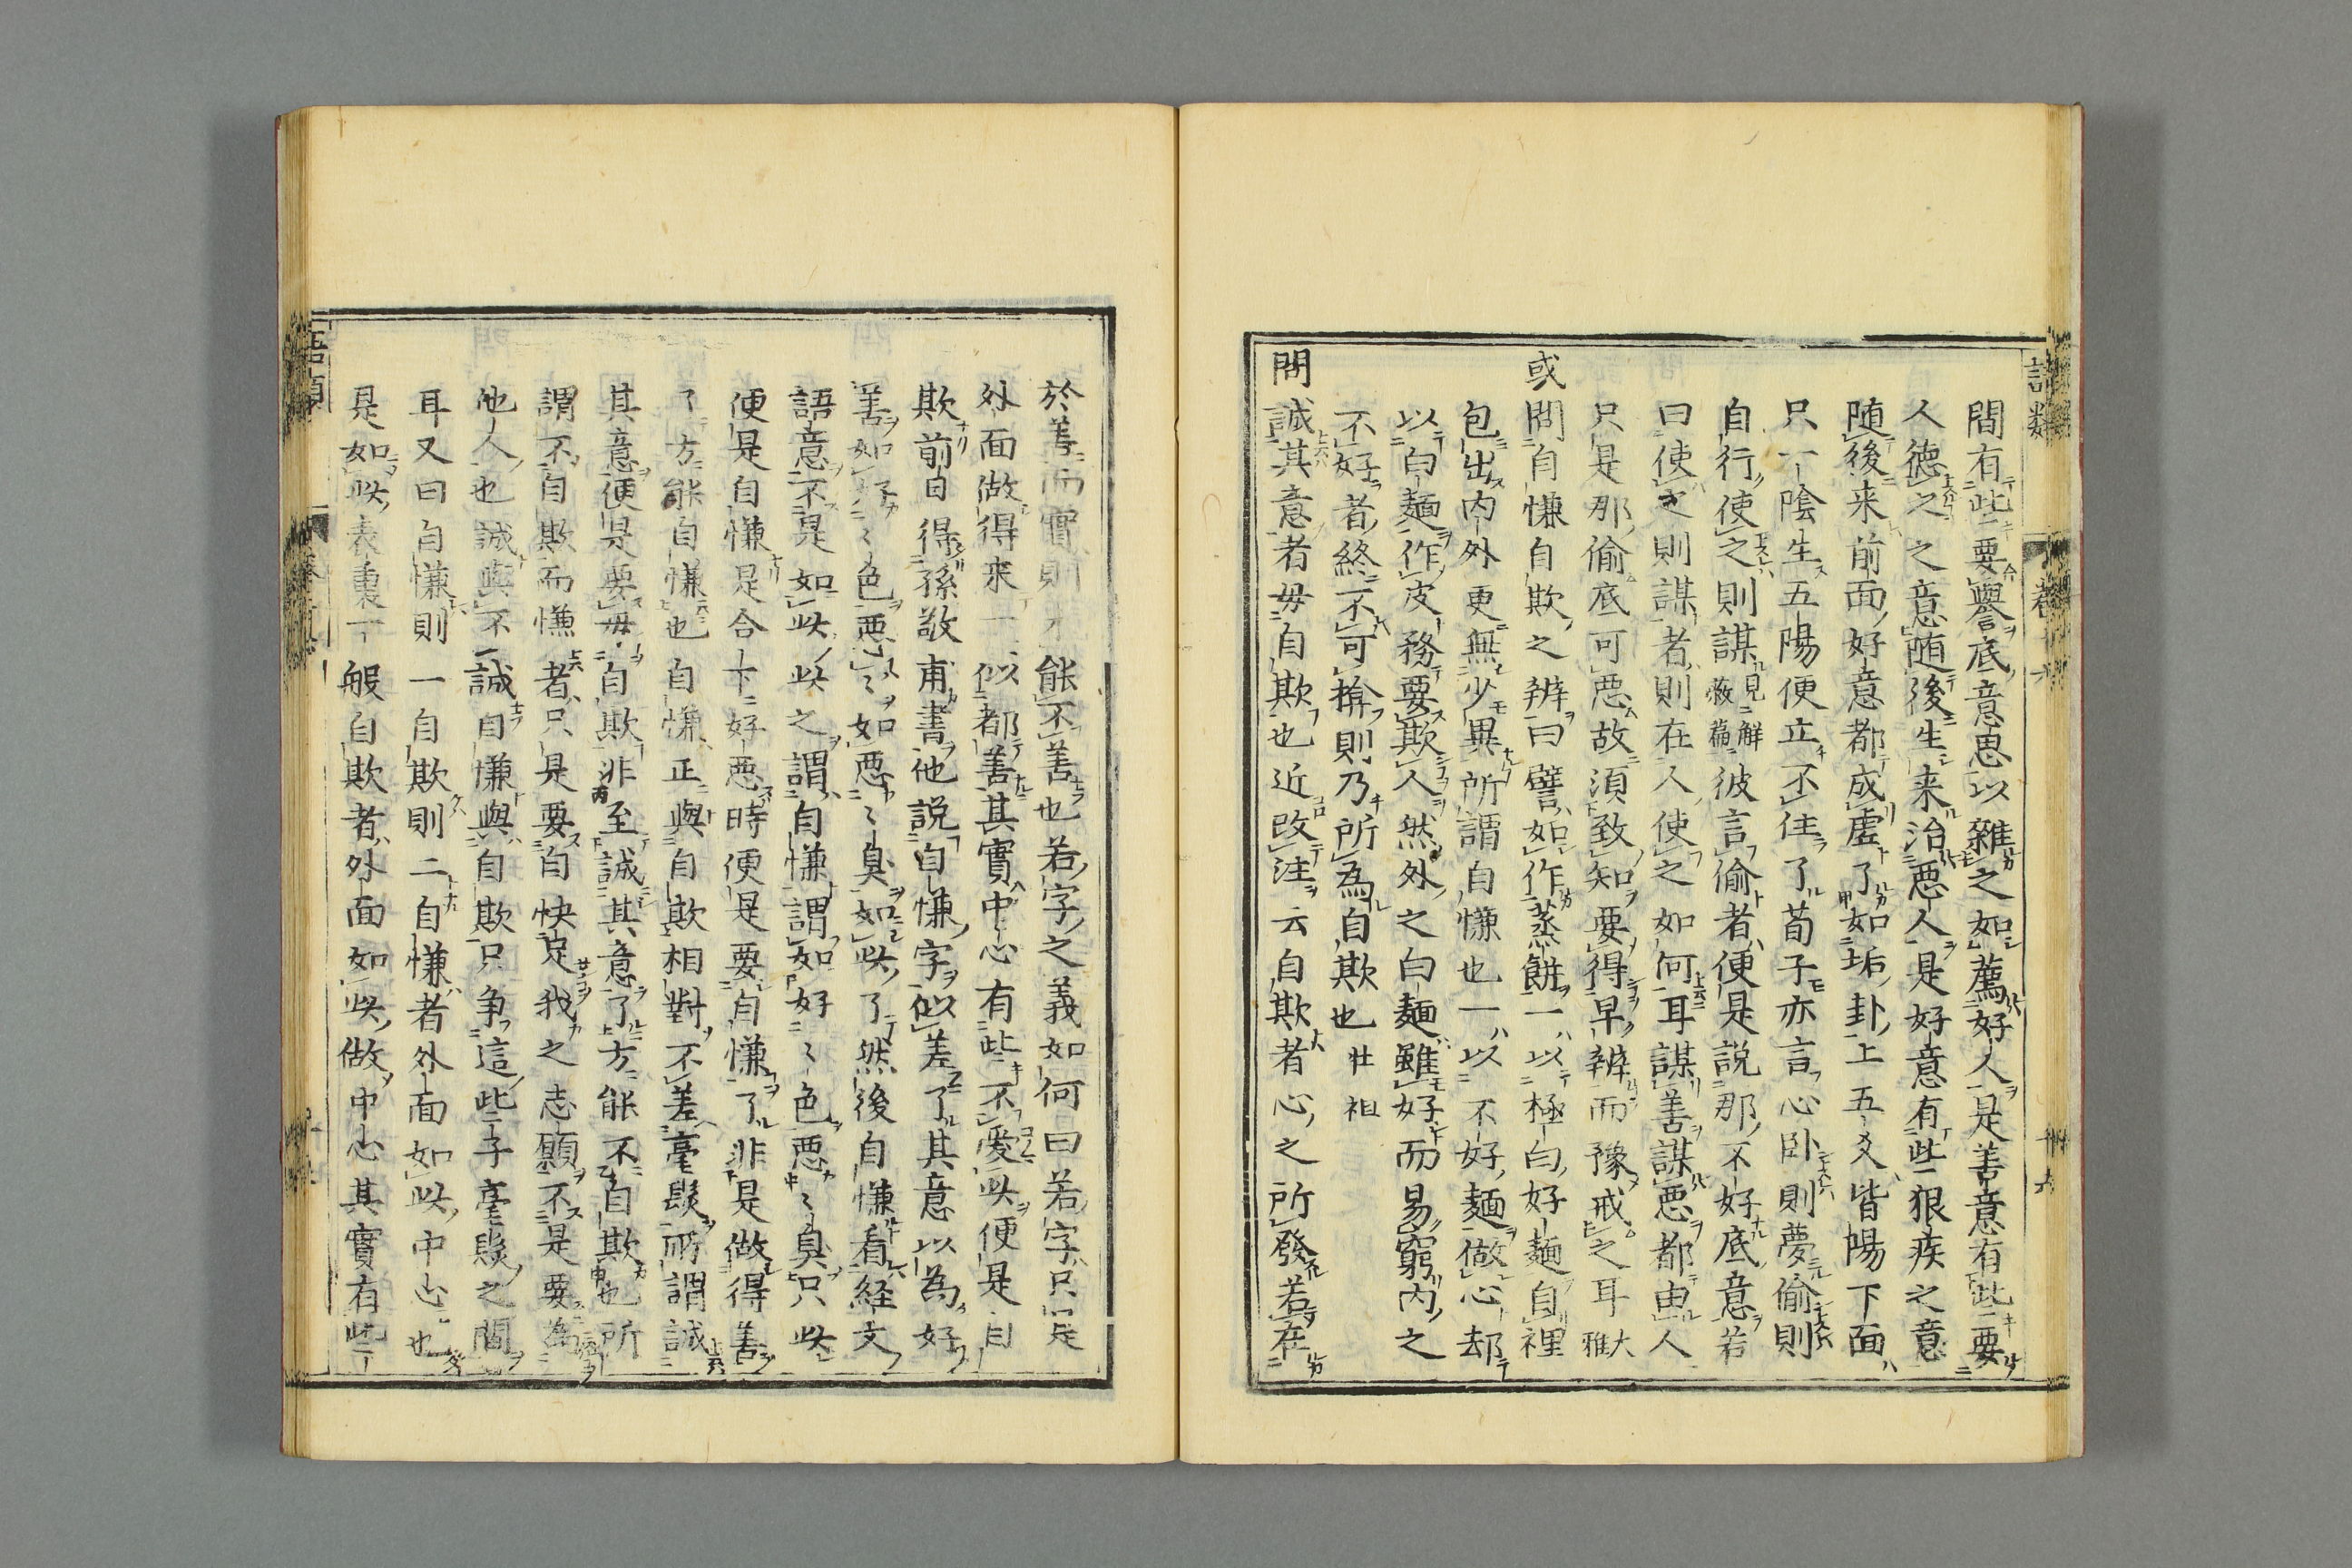 間有些要譽底意思以雜之如薦好人是善意有些要
人德之之意随後生来治悪人是好意有些狠疾之意
随後来前面好意都成虚了如垢卦上五爻皆陽下面
只一陰生五陽便立不住了荀子亦言心卧則夢偷則
自行使之則謀見解蔽篇彼言偷者便是説那不好底意若
曰使之則謀者則在人使之如何耳謀善謀悪都由人
只是那偷底可悪故須致知要得早辨而豫戒之耳大雅
或問自慊自欺之辨曰譬如作蒸餅一以極白好麺自裡
包出内外更無少異所謂自慊也一以不好麺做心却
以白麺作皮務要欺人然外之白麺雖好而易窮内之
不好者終不可揜則乃所為自欺也壮祖
問誠其意者毋自欺也近改注云自欺者心之所發若在
於善而實則 能不善也若字之義如何曰若字只是
外面做得来一似都善其實中心有些不愛此便是自
欺前日得孫敬甫書他説自慊字似差了其意以為好
善如好〻色悪〻如悪〻臭如此了然後自慊看経文
語意不是如此此之謂自慊謂如好〻色悪〻臭只此
便是自慊是合下好悪時便是要自慊了非是做得善
了方能自慊也自慊正與自欺相對不差毫髮所謂誠
其意便是要毋自欺非至誠其意了方能不自欺也所
謂不自欺而慊者只是要自快足我之志願不是要為
他人也誠與不誠自慊與自欺只争這些子毫髮之間
耳又曰自慊則一自欺則二自慊者外面如此中心也
是如此表裏一般自欺者外面如此做中心其實有些